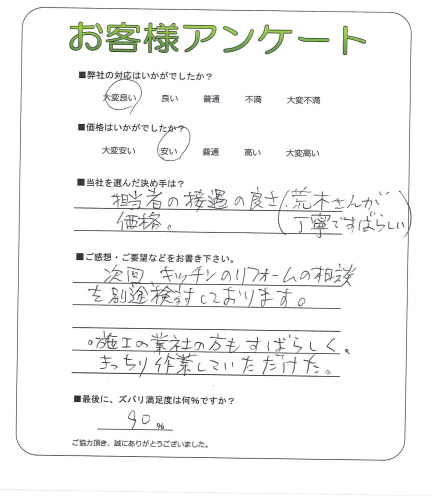 お客様アンケート
■弊社の対応はいかがでしたか？
大変良い 良い 普通 不満 大変不満
■価格はいかがでしたか？
大変安い 安い 普通 高い 大変高い
■当社を選んだ決め手は？
担当者の接遇の良さ(荒木さんが
価格。 丁寧ですばらしい)
■ご感想・ご要望などをお書き下さい。
次回、キッチンのリフォームの相談
を別途検討しております。
。施工の業社の方もすばらしく、
きっちり作業していただけた。
■最後に、ズバリ満足度は何％ですか？
90 %
ご協力頂き、誠にありがとうございました。